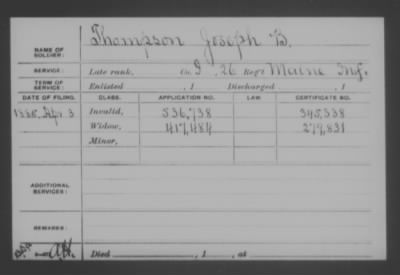 NAME OF SOLDIER: Thompson Joseph B.
SERVICE: Late rank, Co. I, 26 Reg't Maine Inf.
TERM OF SERVICE: Enlisted , 1 Discharged , 1
DATE OF FILING. CLASS. APPLICATION NO. LAW. CERTIFICATE NO.
1885, Apr. 3 Invalid, 536,738 345,338
Widow, 417,484 279,831
Minor,
ADDITIONAL SERVICES:
REMARKS:
Died , 1 , at